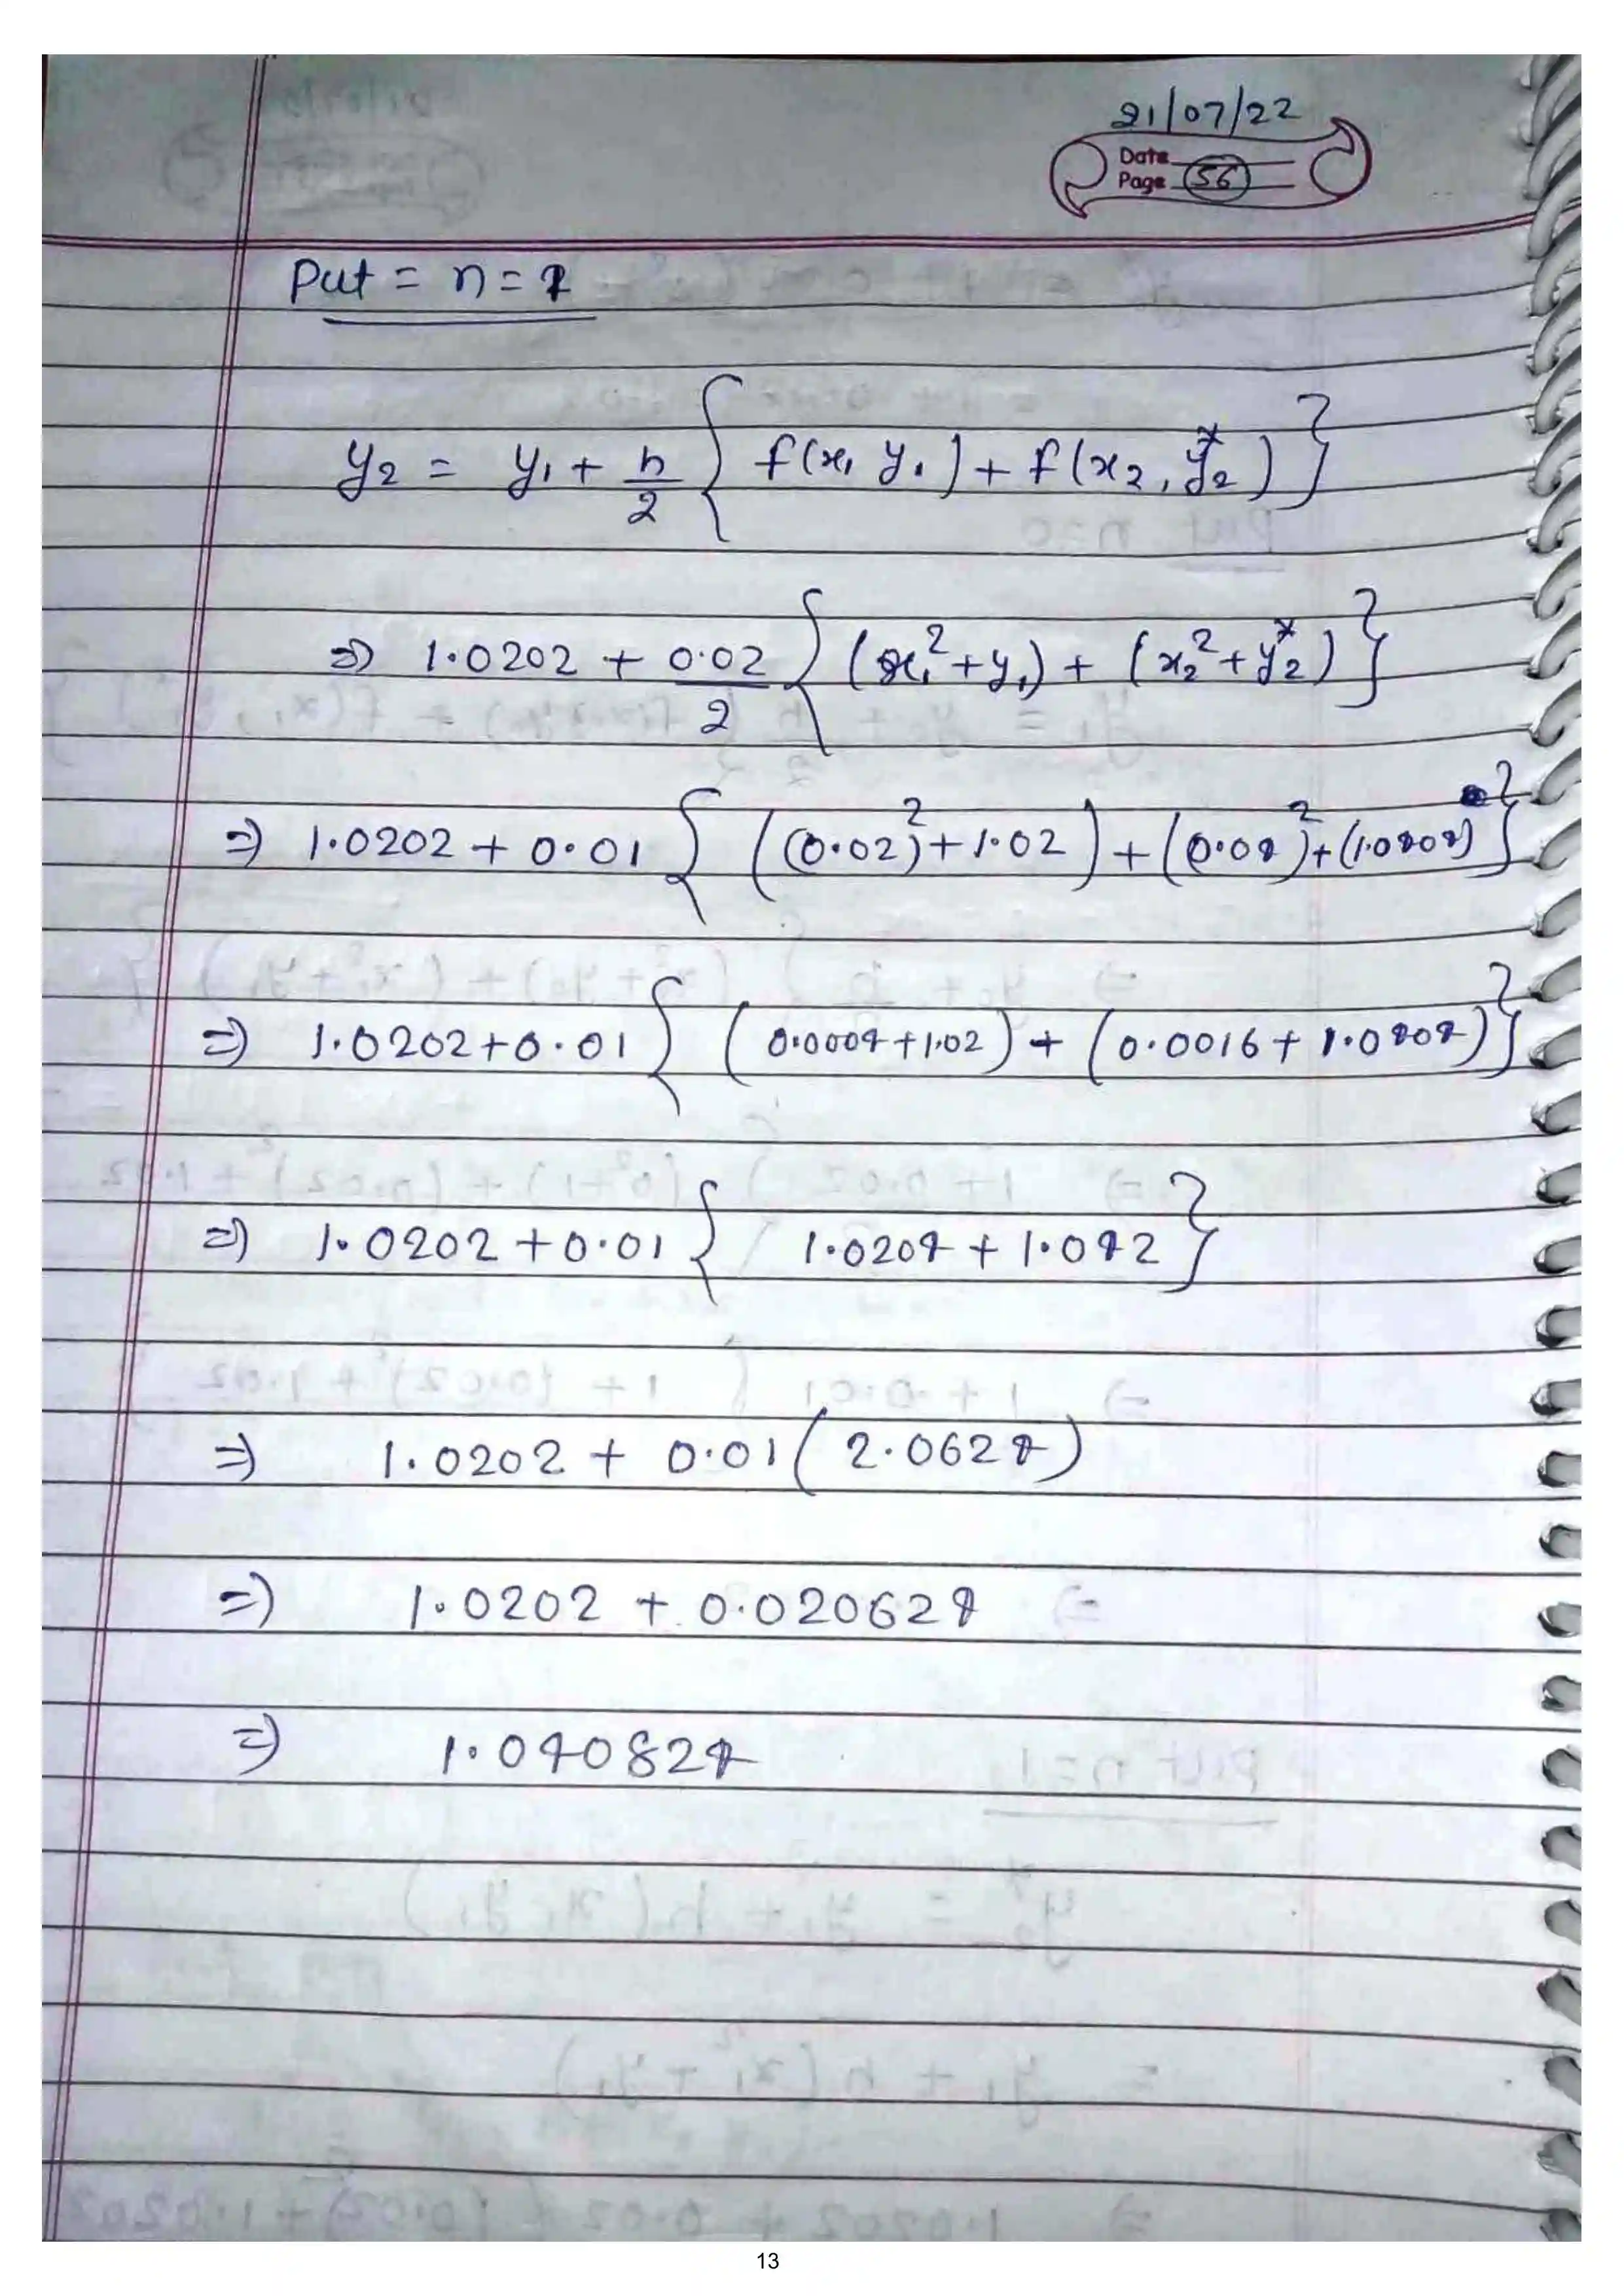 21/07/22
Date
Page 56
Put = n = 1
y₂ = y₁ + h/2 { f(x₁ y₁) + f(x₂, y₂*) }
⇒ 1.0202 + 0.02/2 { (x₁² + y₁) + (x₂² + y₂*) }
⇒ 1.0202 + 0.01 { ((0.02)² + 1.02) + (0.04)² + (1.0404) }
⇒ 1.0202 + 0.01 { (0.0004 + 1.02) + (0.0016 + 1.0404) }
⇒ 1.0202 + 0.01 { 1.0204 + 1.042 }
⇒ 1.0202 + 0.01 ( 2.0624 )
⇒ 1.0202 + 0.020624
⇒ 1.040824
13